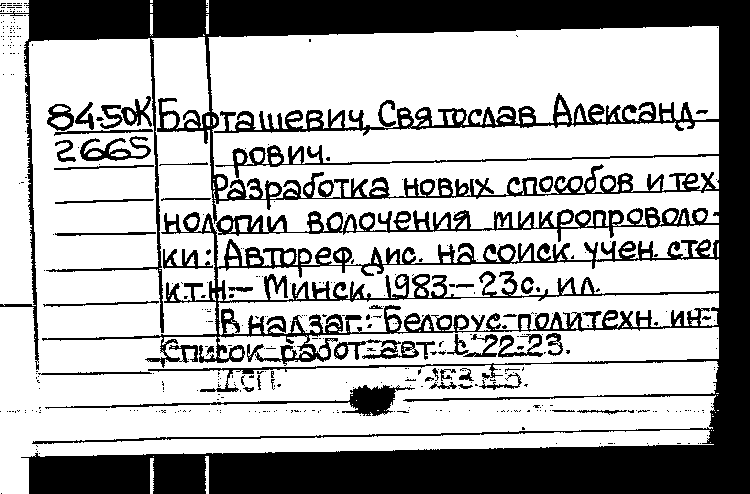 84-50К Барташевич, Святослав Александ-
2665 рович.
Разработка новых способов и тех-
нологии волочения микропроволо-
ки: Автореф. дис. на соиск. учен. степ
к.т.н. - Минск, 1983. - 23с., ил.
В надзаг.: Белорус. политехн. ин-т
Список работ авт.: с. 22-23.
ДСП.